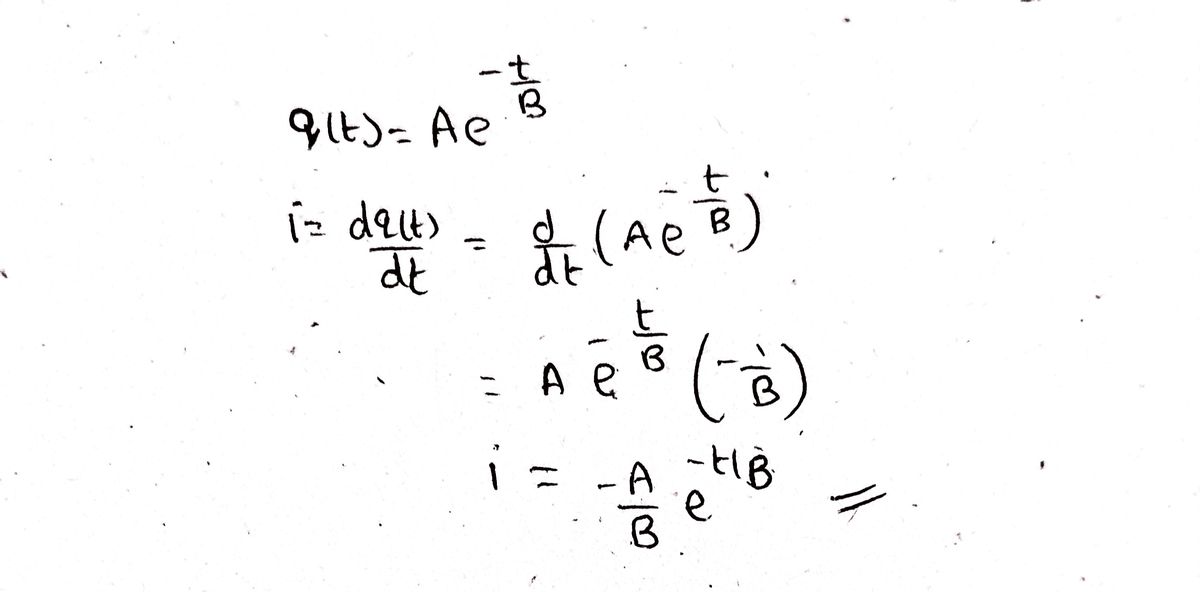 q(t) = Ae^{-t/B}
i = dq(t)/dt = d/dt (Ae^{-t/B})
= A e^{-t/B} (-1/B)
i = -A/B e^{-t/B}